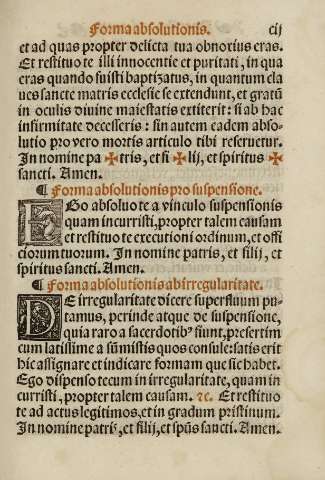 Forma absolutionis. cij
et ad quas propter delicta tua obnoxius eras.
Et restituo te illi innocentie et puritati, in qua
eras quando fuisti baptizatus, in quantum cla
ues sancte matris ecclesie se extendunt, et gratũ
in oculis diuine maiestatis extiterit: si ab hac
infirmitate decesseris: sin autem eadem abso-
lutio pro vero mortis articulo tibi reseruetur.
In nomine pa ✠ tris, et fi ✠ lij, et spiritus ✠
sancti. Amen.
¶ Forma absolutionis pro suspensione.
EGo absoluo te a vinculo suspensionis
quam incurristi, propter talem causam
et restituo te executioni ordinum, et offi
ciorum tuorum. In nomine patris, et filij, et
spiritus sancti. Amen.
¶ Forma absolutionis ab irregularitate.
DE irregularitate dicere superfluum pu-
tamus, perinde atque de suspensione,
quia raro a sacerdotibꝰ fiunt, presertim
cum latissime a sũmistis quos consule: satis erit
hic assignare et indicare formam que sic habet.
Ego dispenso tecum in irregularitate, quam in
curristi, propter talem causam. ⁊c. Et restituo
te ad actus legitimos, et in gradum pristinum.
In nomine patrꝭ, et filij, et spũs sancti. Amen.